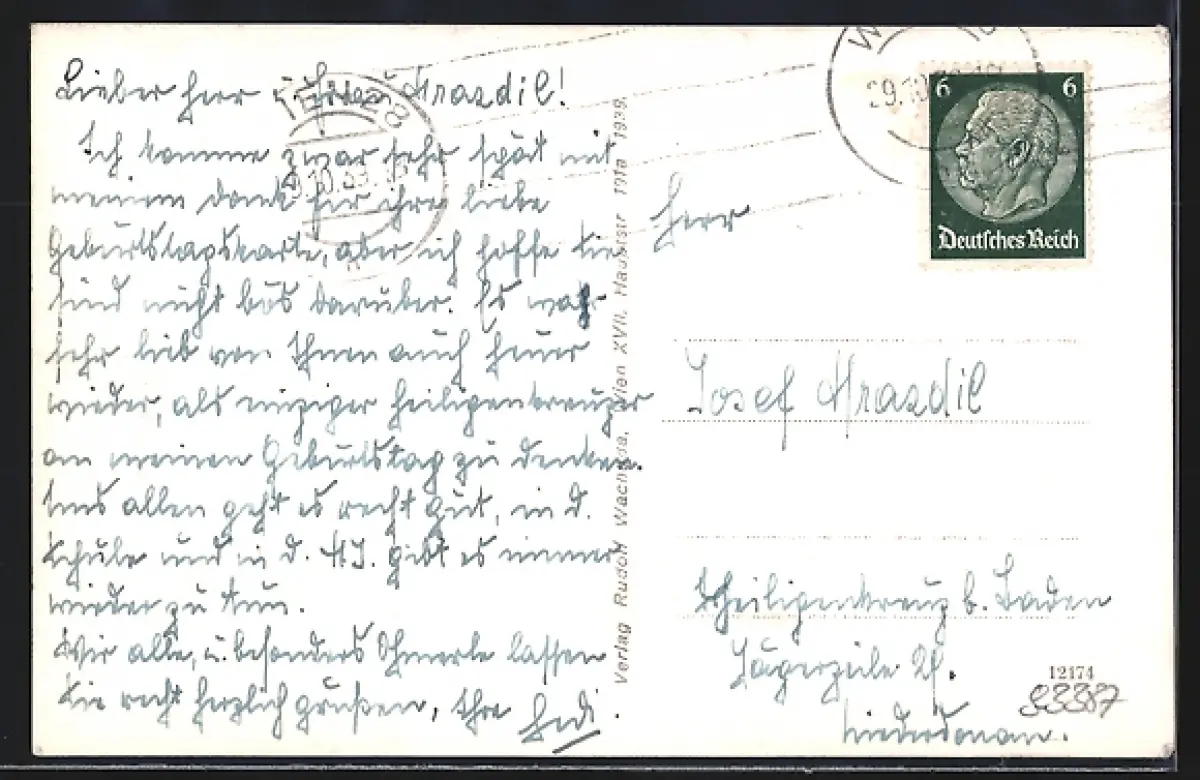 Lieber Herr u. Frau Mrasdil!
Ich komme zwar sehr spät mit
meinem Dank für ihre liebe
Geburtstagskarte, aber ich hoffe Sie
sind nicht bös darüber. Es wahr
sehr lieb von Ihnen auch heuer
wieder, als einziger Heiligenkreuzer
an meinen Geburtstag zu denken.
Uns allen geht es recht gut, in d.
Schule und in d. H.J. gibt es immer
wieder zu tun.
Wir alle, u. besonders Schmerle lassen
Sie recht herzlich grüßen, Ihre Hedi.
Verlag Rudolf Wien XVII. Hauptstr 1939
29.10.
6 6
Deutsches Reich
Herr
Josef Mrasdil
Heiligenkreuz b. Baden
Jägerzeile 24.
Niederdonau.
12174
93387